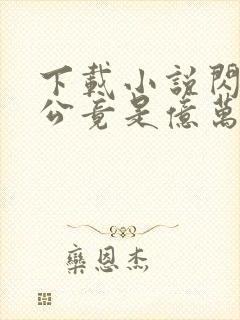 下載小說閃
公竟是億萬
欒恩杰